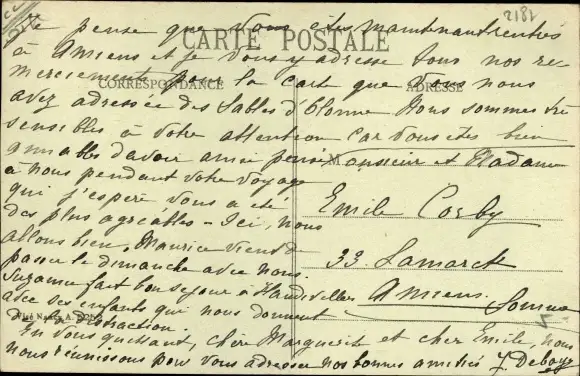 2181
Je pense que vous êtes maintenant rentrés
CARTE POSTALE
à Amiens et je vous y adresse tous nos re
merciements pour la carte que vous nous
CORRESPONDANCE
ADRESSE
avez adressée des Sables d'Olonne Nous sommes très
sensibles à votre attention car vous êtes bien
aimables d'avoir ainsi pensé
à nous pendant votre voyage
qui j'espère vous a été
des plus agréables - Ici, nous
allons bien, Maurice vient
passer le dimanche avec nous.
Suzanne fait bon séjour à
avec ses enfants qui nous donnent
de la distraction.
En vous quittant, chère Marguerite et cher Emile, nous
nous réunissons pour vous adresser nos bonnes amitiés
Monsieur et Madame
Emile Cosby
33. Lamarck
Amiens
Somme